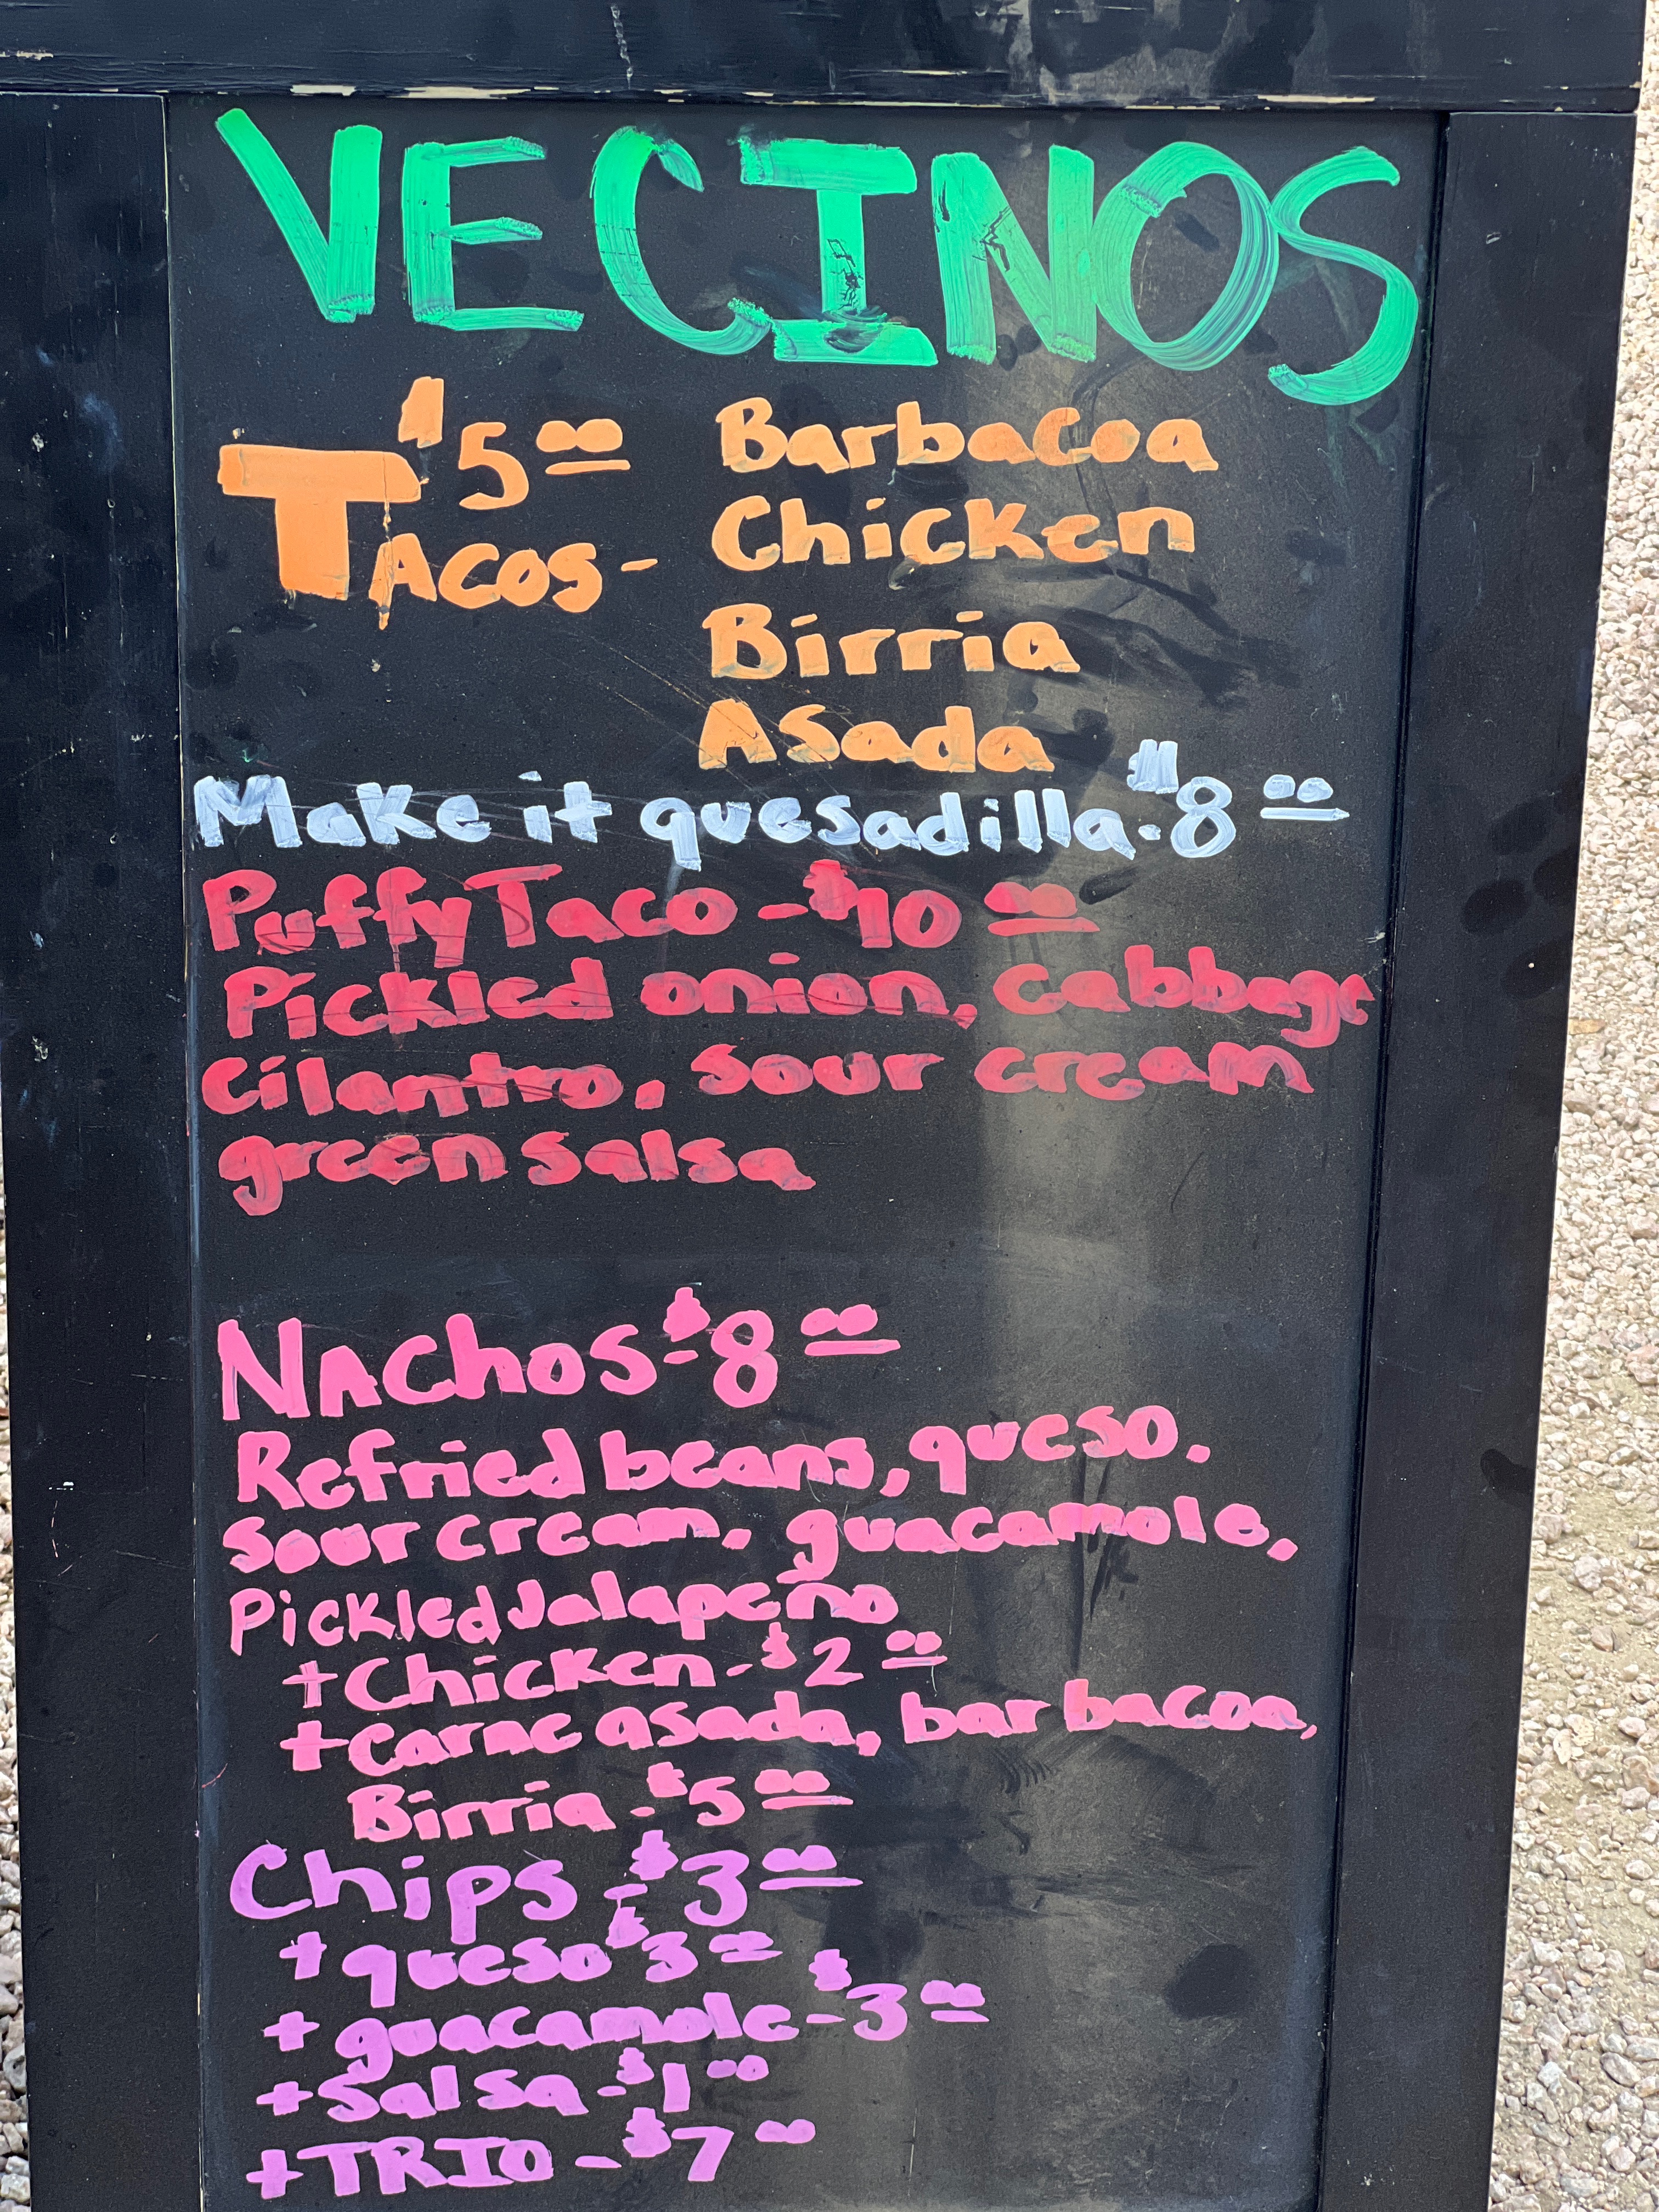 VECINOS
$5.00 Barbacoa
TACOS - Chicken
Birria
Asada
Make it quesadilla - $8.00
Puffy Taco - $10.00
Pickled onion, cabbage
cilantro, sour cream
green salsa
NAChOS - $8.00
Refried beans, queso.
sour cream, guacamole,
Pickled Jalapeño
+ Chicken - $2.00
+ carne asada, barbacoa,
Birria - $5.00
Chips - $3.00
+ queso - $3.00
+ guacamole - $3.00
+ Salsa - $1.00
+ TRIO - $7.00